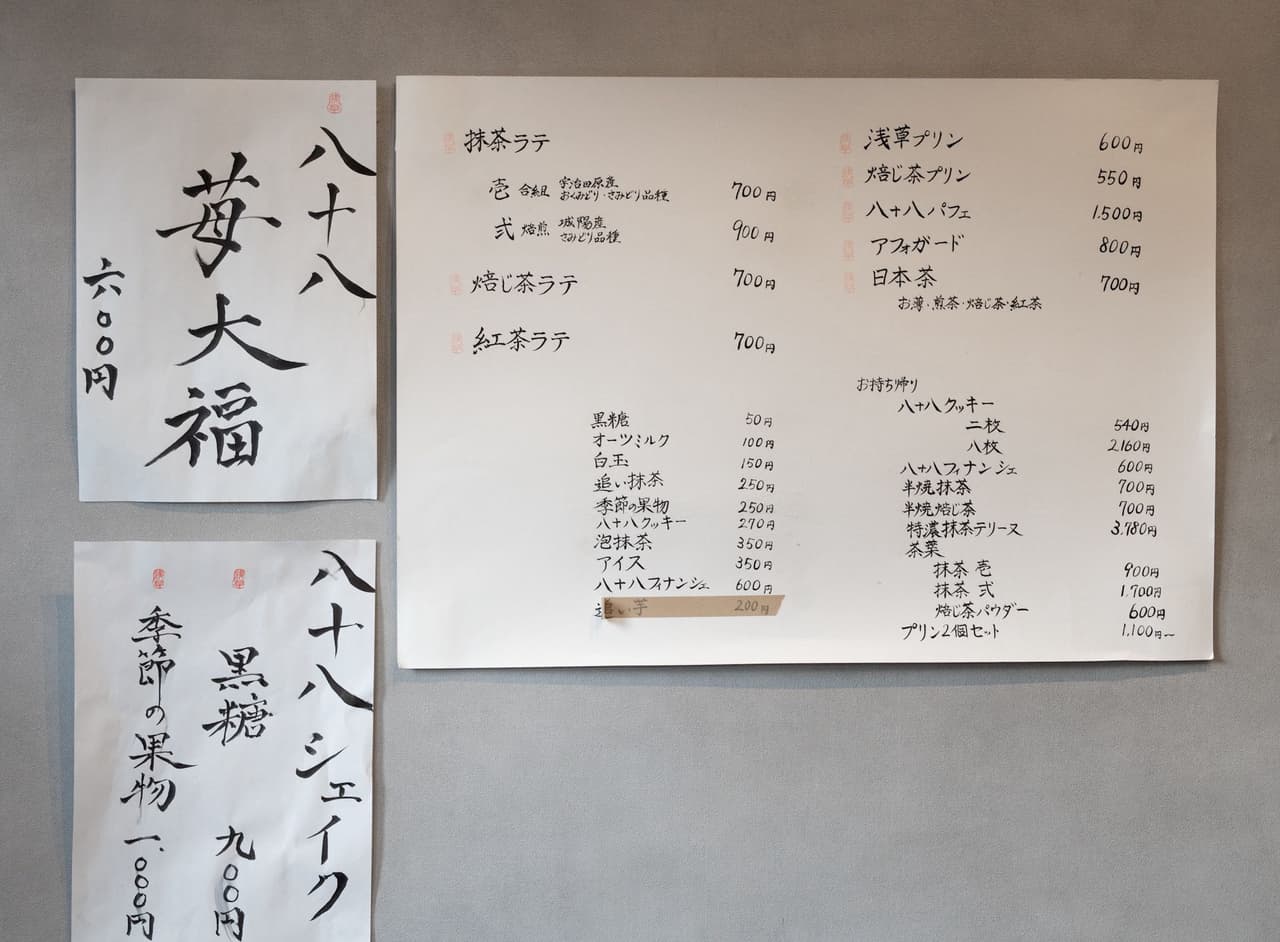 八十八
苺大福
六〇〇円
八十八シェイク
黒糖 九〇〇円
季節の果物 一、〇〇〇円
抹茶ラテ
壱 合組 宇治田原産 おくみどり・さみどり品種 700円
弐 焙煎 城陽産 さみどり品種 900円
焙じ茶ラテ 700円
紅茶ラテ 700円
黒糖 50円
オーツミルク 100円
白玉 150円
追い抹茶 250円
季節の果物 250円
八十八クッキー 270円
泡抹茶 350円
アイス 350円
八十八フィナンシェ 600円
追い芋 200円
浅草プリン 600円
焙じ茶プリン 550円
八十八パフェ 1,500円
アフォガード 800円
日本茶 700円
お薄・煎茶・焙じ茶・紅茶
お持ち帰り
八十八クッキー
二枚 540円
八枚 2,160円
八十八フィナンシェ 600円
半焼抹茶 700円
半焼焙じ茶 700円
特濃抹茶テリーヌ 3,780円
茶葉
抹茶 壱 900円
抹茶 弐 1,700円
焙じ茶パウダー 600円
プリン2個セット 1,100円〜